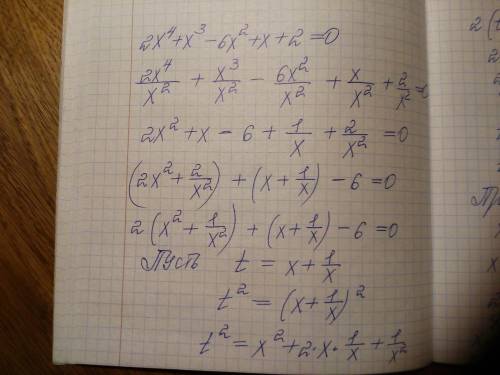 2x⁴+x³-6x²+x+2=0
2x⁴/x² + x³/x² - 6x²/x² + x/x² + 2/x² =
2x²+x-6+1/x+2/x²=0
(2x²+2/x²)+(x+1/x)-6=0
2(x²+1/x²)+(x+1/x)-6=0
Пусть t=x+1/x
t²=(x+1/x)²
t²=x²+2·x·1/x+1/x²
2(t